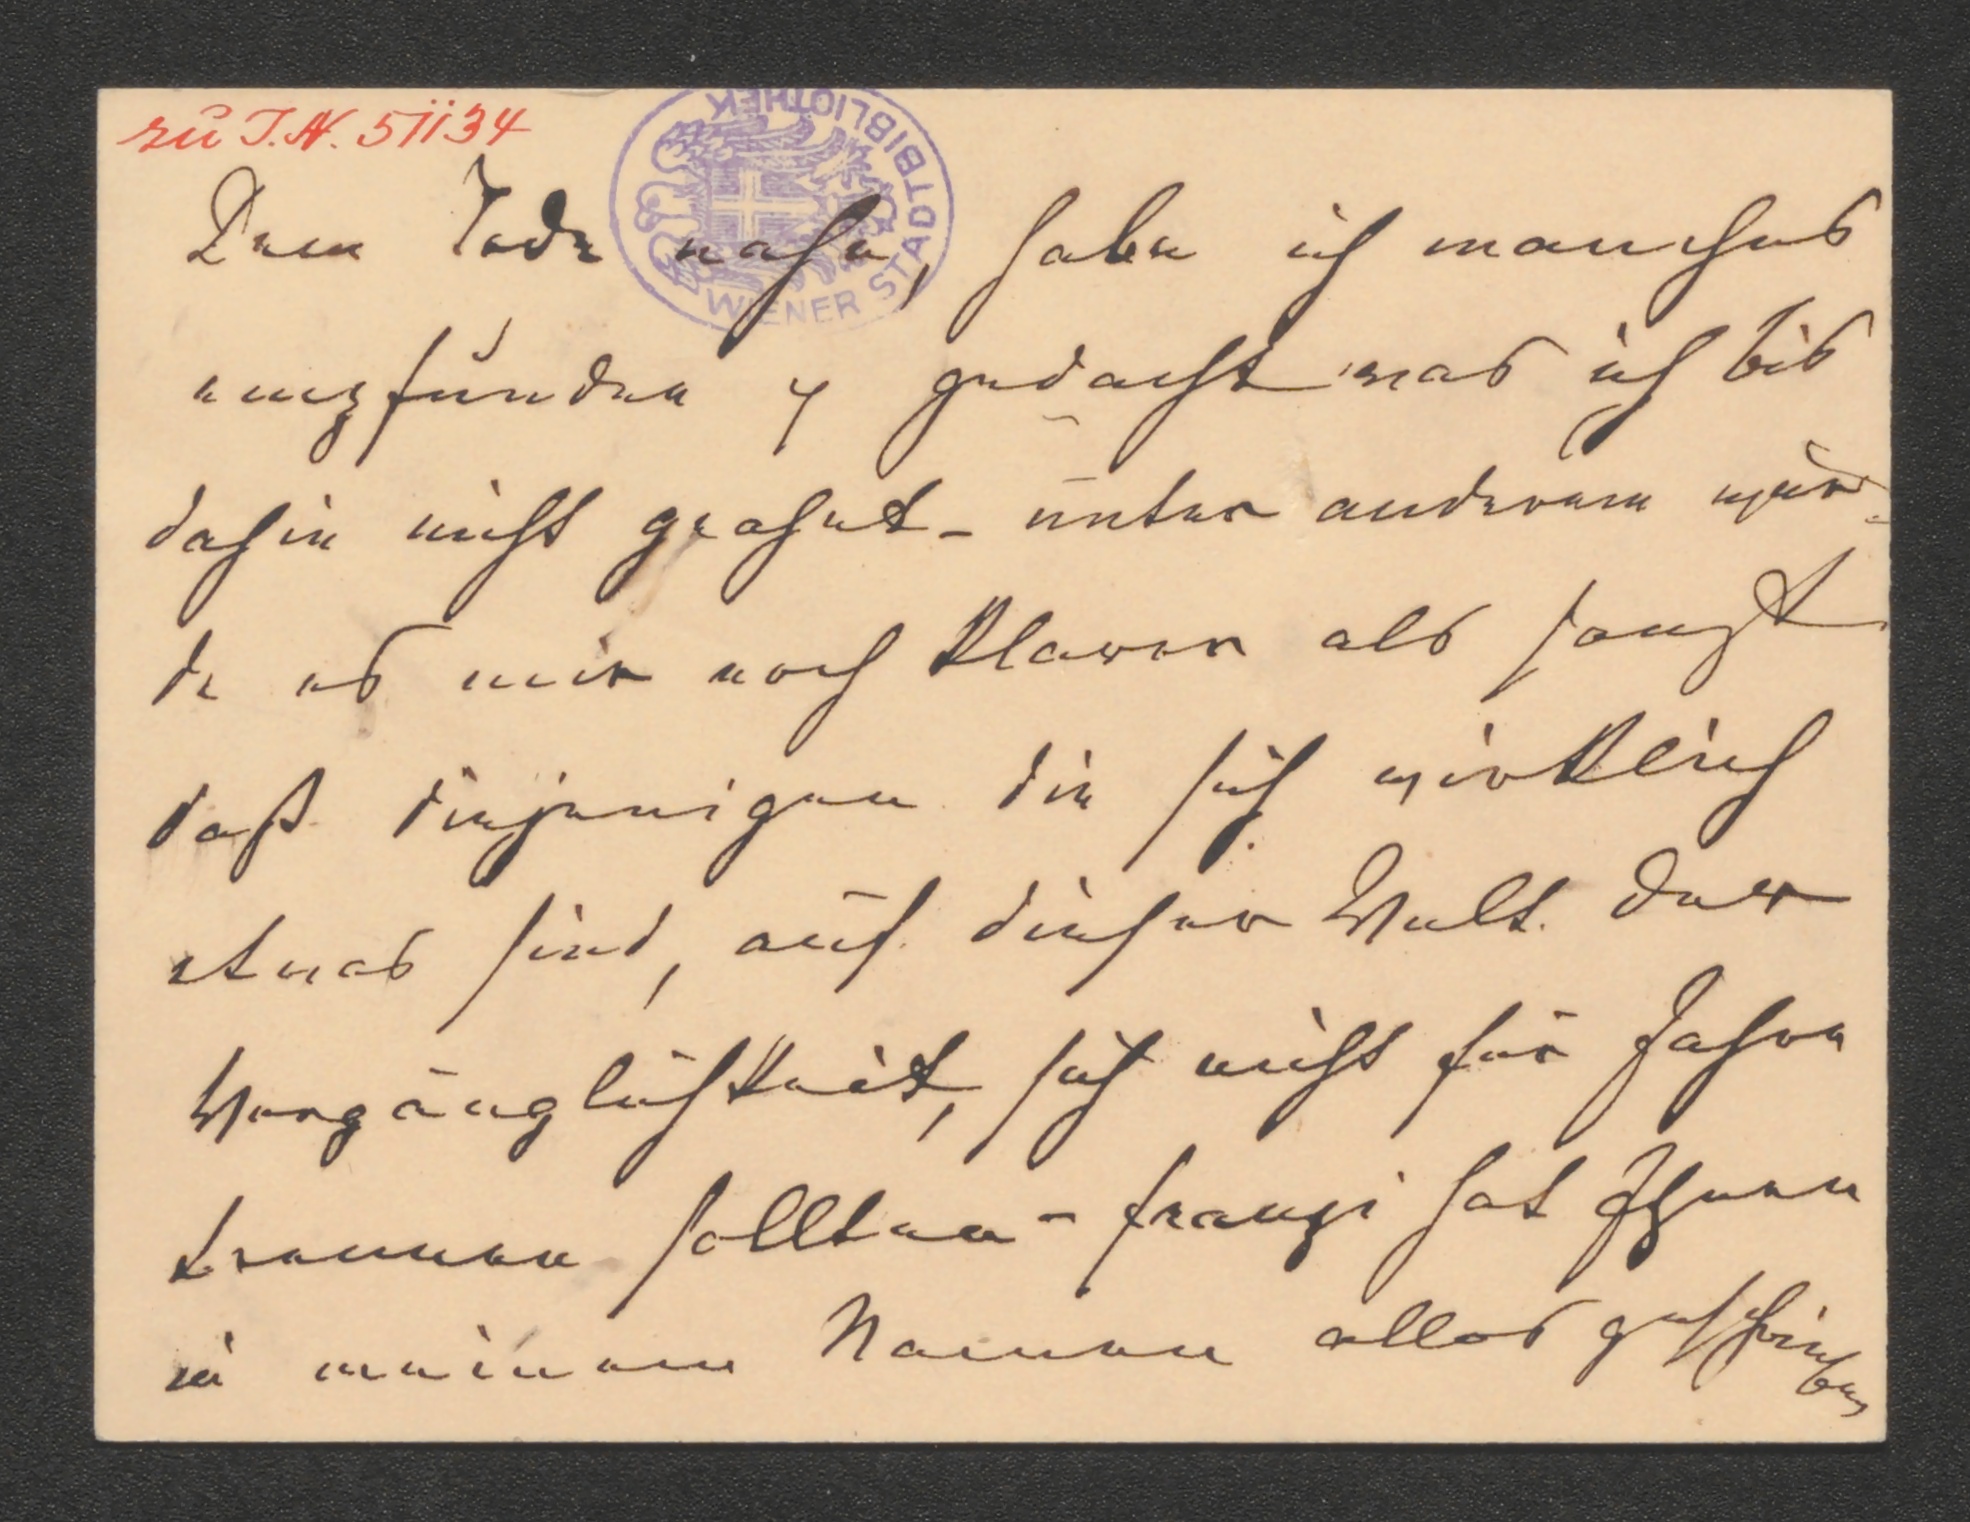 zu I.N. 51134
WIENER STADTBIBLIOTHEK
Dem Tode nahe, habe ich manches
empfunden & gedacht was ich bis
dahin nicht geahnt – unter anderem wur-
de es mir noch klarer als sonst
daß diejenigen die sich wirklich
etwas sind, auf dieser Welt der
Vergänglichkeit, sich nicht für Jahre
trennen sollten – Franzi hat Ihnen
in meinem Namen alles geschrieben